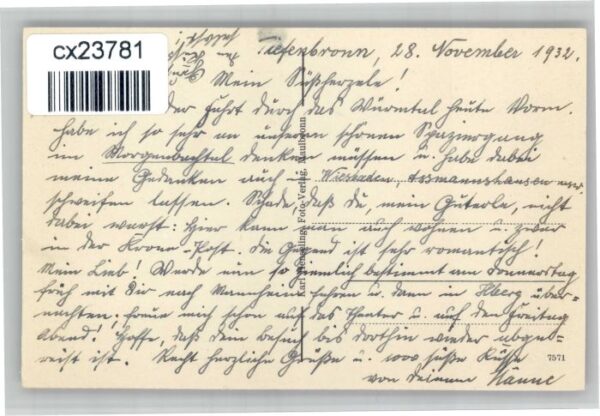 cx23781
Tiefenbronn, 28. November 1932.
Mein Süßherzele!
der Fahrt durch das Würmtal heute Vorm.
habe ich so sehr an unseren schönen Spaziergang
im Morgenbachtal denken müssen u. habe dabei
meine Gedanken auch Wiesbaden, Assmannshausen
schweifen lassen. Schade, daß Du, mein Guterle, nicht
dabei warst! Hier kann man auch wohnen u. zwar
in der Krone-Post. Die Gegend ist sehr romantisch!
Mein Lieb! Werde nun so ziemlich bestimmt am Donnerstag
früh mit Dir nach Mannheim fahren u. dann in Hberg über-
nachten; freue mich schon auf das Theater u. auf den Freitag
Abend! Hoffe, daß dein Besuch bis dorthin wieder abge-
reist ist. Recht herzliche Grüße u. 1000 süße Küsse
von Deinem Hanne
Foto-Verlag, Maulbronn
7571